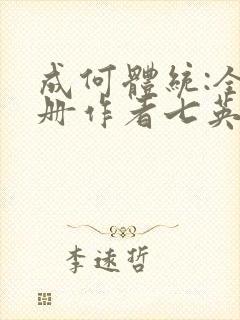 成何體統:全
册作者七英
李遠哲